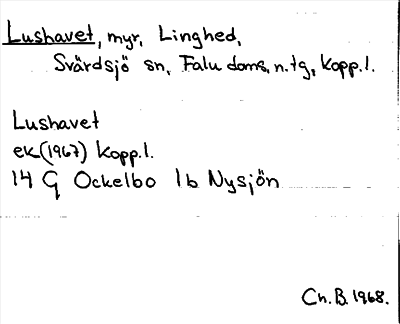 Lushavet, myr, Linghed,
Svärdsjö sn, Falu doms. n. tg, Kopp. l.
Lushavet
ek (1967) Kopp. l.
14 G Ockelbo 1b Nysjön
Ch. B. 1968.